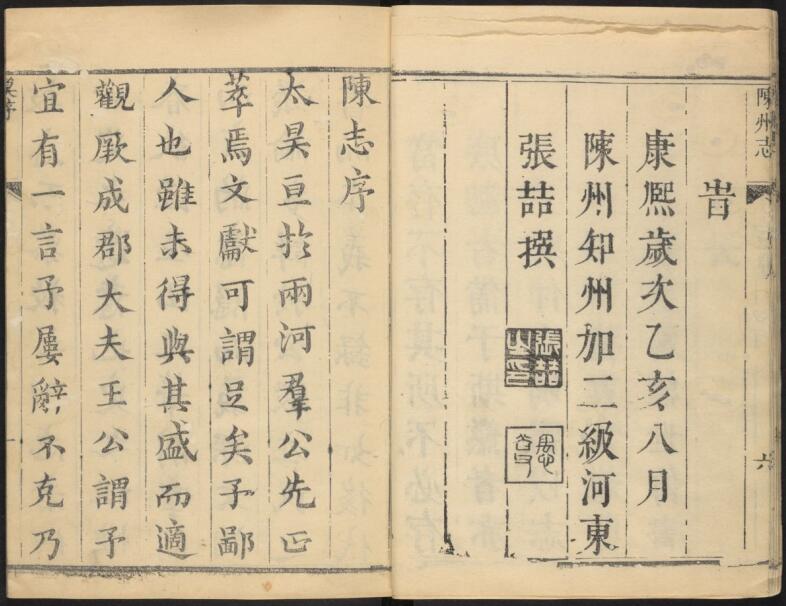 陳州志
六
旹
康熙歲次乙亥八月
陳州知州加二級河東
張喆撰
張喆之印
陳志序
太昊亘扵兩河羣公先正
萃焉文獻可謂足矣予鄙
人也雖未得與其盛而適
觀厥成郡大夫王公謂予
宜有一言予屢辭不克乃